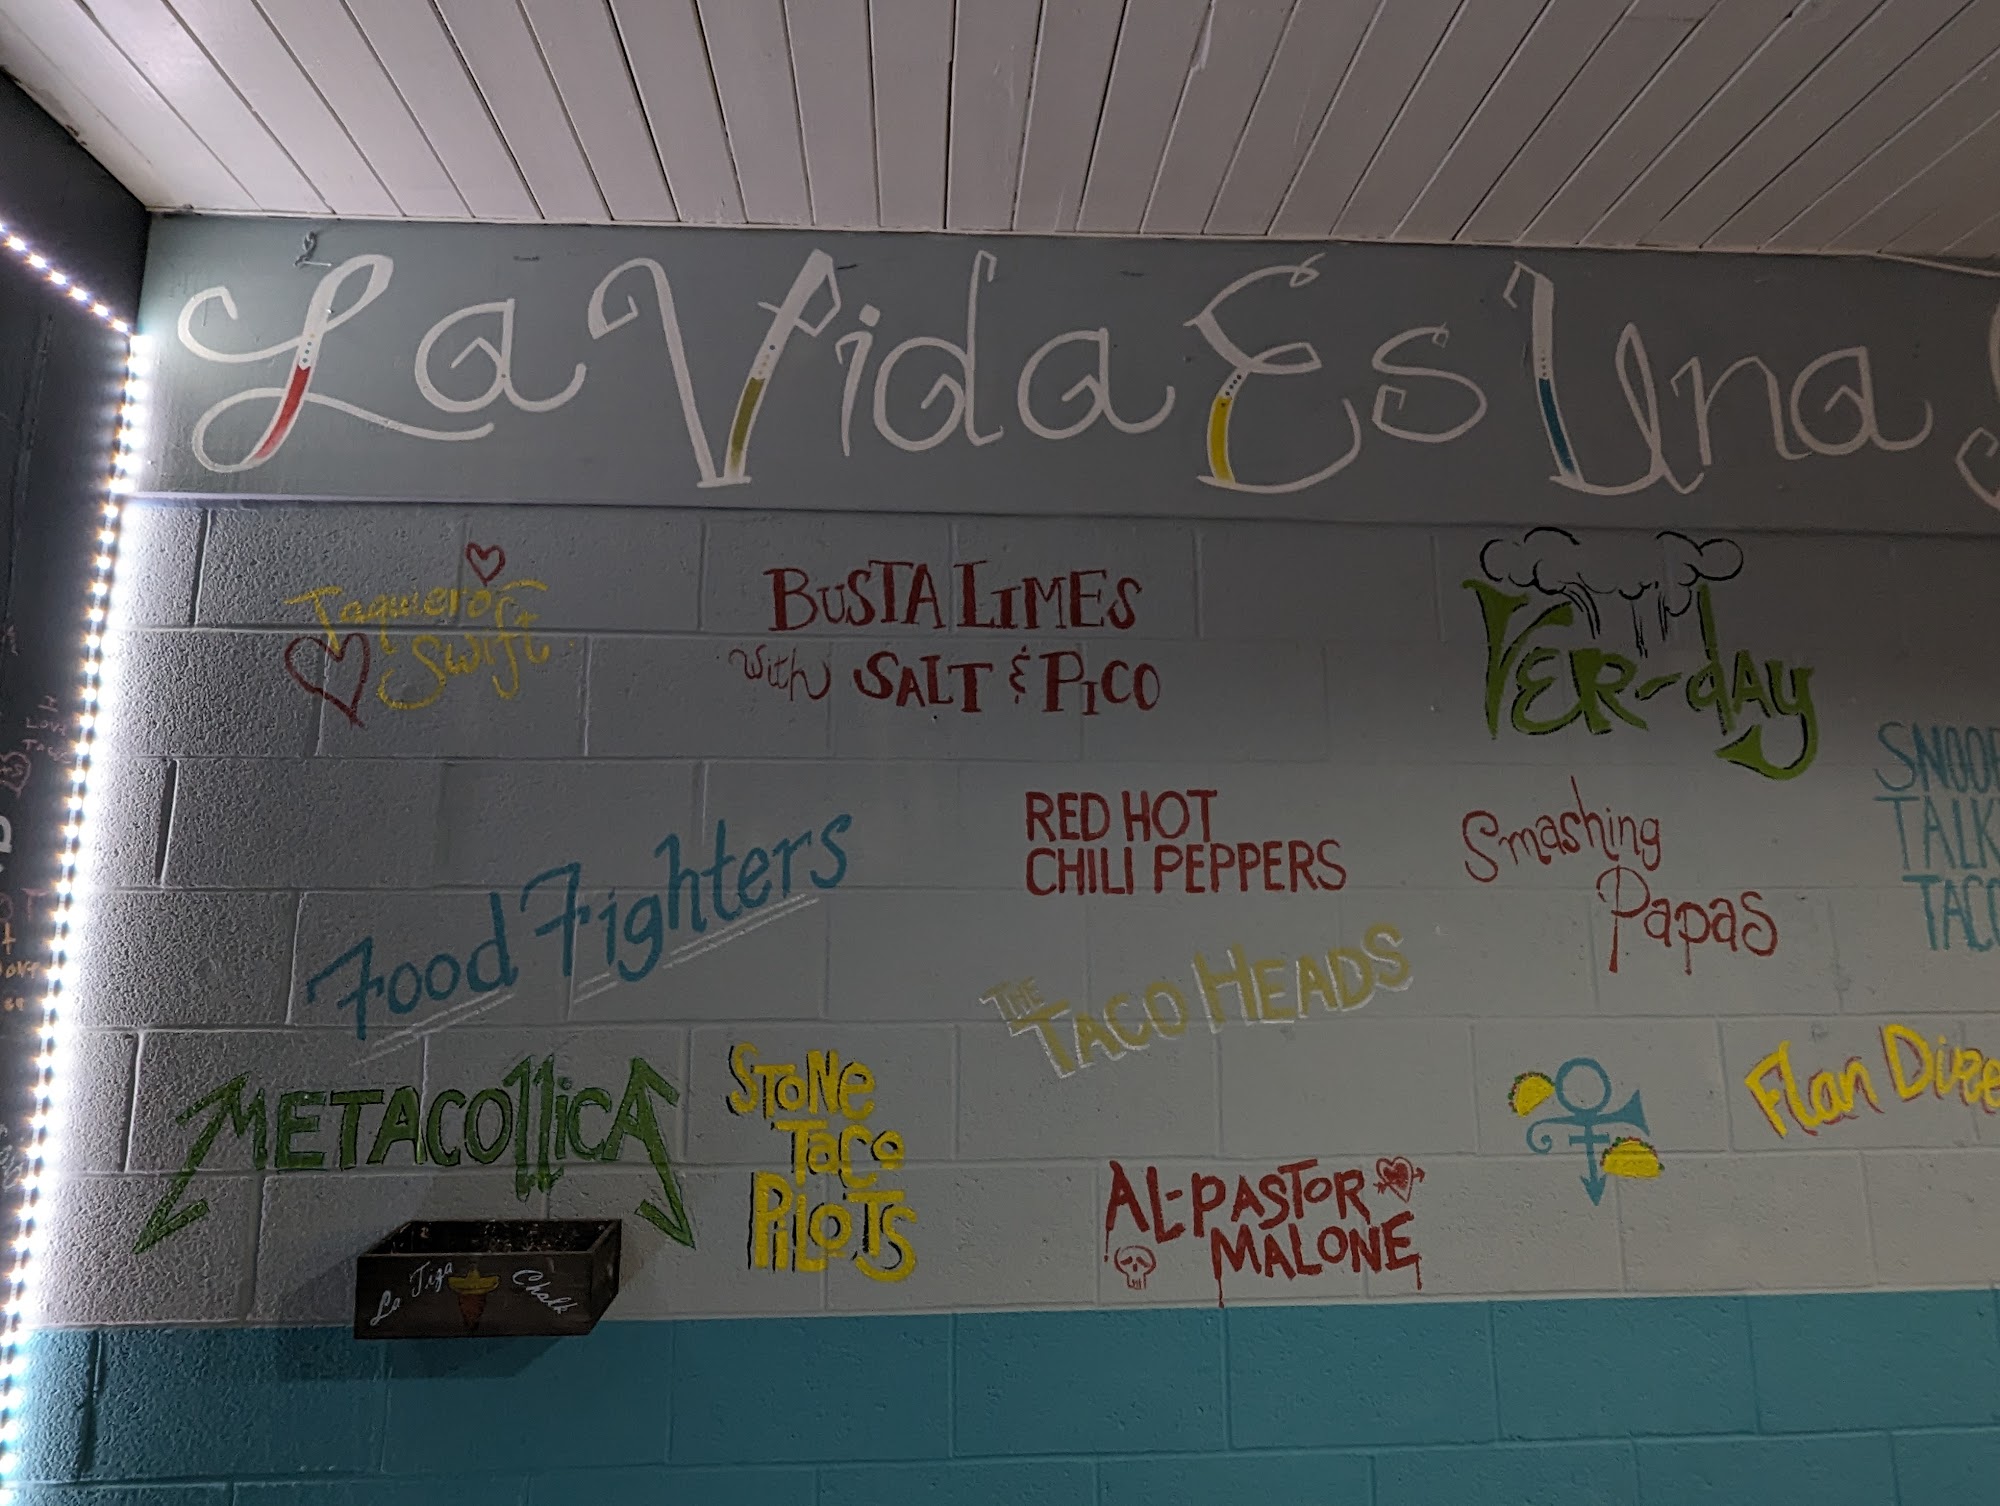 La Vida Es Una
Taquiero
Swift
BUSTA LIMES
with SALT & PICO
VER-dAY
SNOOP
TALK
TACO
Food Fighters
RED HOT
CHILI PEPPERS
Smashing
Papas
THE
TACO HEADS
METACOllicA
STONE
TACO
PILOTS
AL-PASTOR
MALONE
Flan Dire
La Tiza Chalk
I
Love